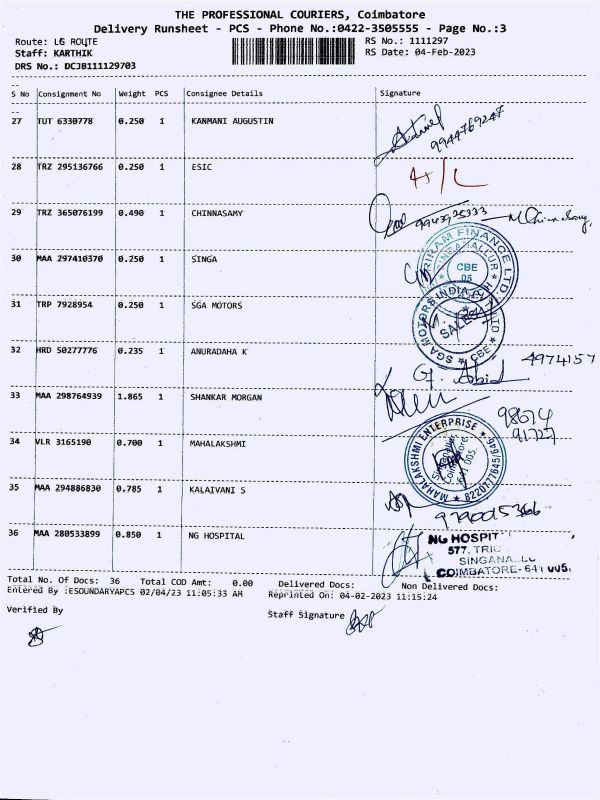 THE PROFESSIONAL COURIERS, Coimbatore
Delivery Runsheet - PCS - Phone No.:0422-3505555 - Page No.:3
Route: LG ROUTE
RS No.: 1111297
Staff: KARTHIK
RS Date: 04-Feb-2023
DRS No.: DCJB111129703
S No Consignment No Weight PCS Consignee Details Signature
27 TUT 6330778 0.250 1 KANMANI AUGUSTIN
9944769247
28 TRZ 295136766 0.250 1 ESIC
29 TRZ 365076199 0.490 1 CHINNASAMY
30 MAA 297410370 0.250 1 SINGA
CBE
05
31 TRP 7928954 0.250 1 SGA MOTORS
SGA MOTORS INDIA
SALES
CBE
32 HRD 50277776 0.235 1 ANURADHA K
4974157
33 MAA 298764939 1.865 1 SHANKAR MORGAN
34 VLR 3165190 0.700 1 MAHALAKSHMI
MAHALAKSHMI ENTERPRISE
35 MAA 294886830 0.785 1 KALAIVANI S
36 MAA 280533899 0.850 1 NG HOSPITAL
NG HOSPIT
577, TRIC
SINGANA
COIMBATORE- 641 005.
Total No. Of Docs: 36 Total COD Amt: 0.00 Delivered Docs: Non Delivered Docs:
Entered By :ESOUNDARYAPCS 02/04/23 11:05:33 AM Reprinted On: 04-02-2023 11:15:24
Verified By
Staff Signature